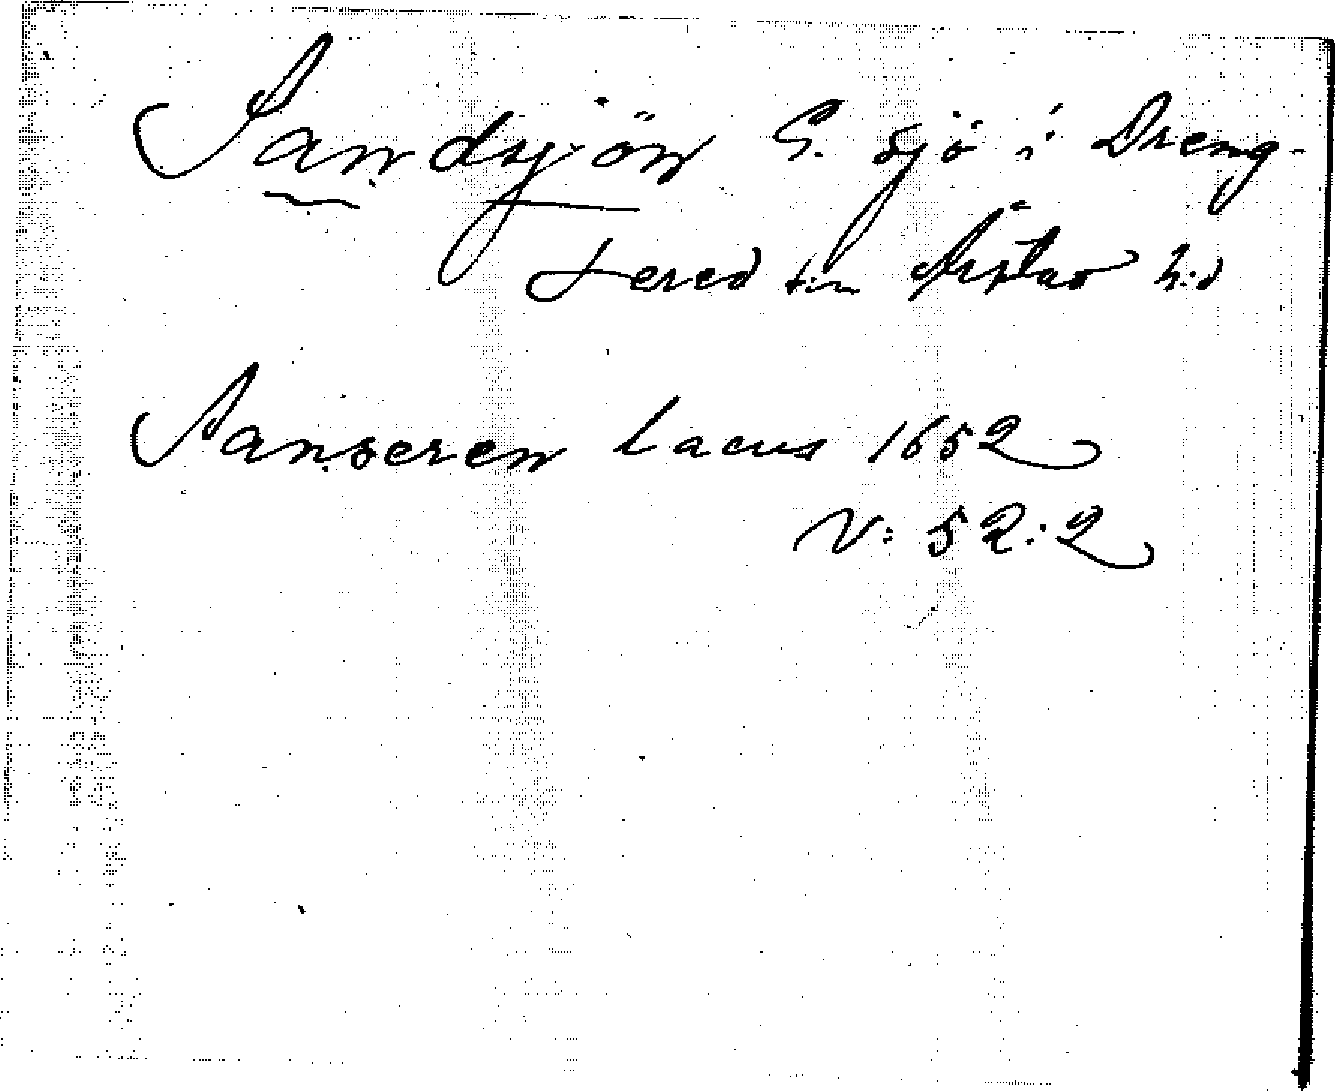 Sandsjön S. sjö i Dreng-
sered sn Årstad h:d
Sanseren lacus 1652
V: 52:2